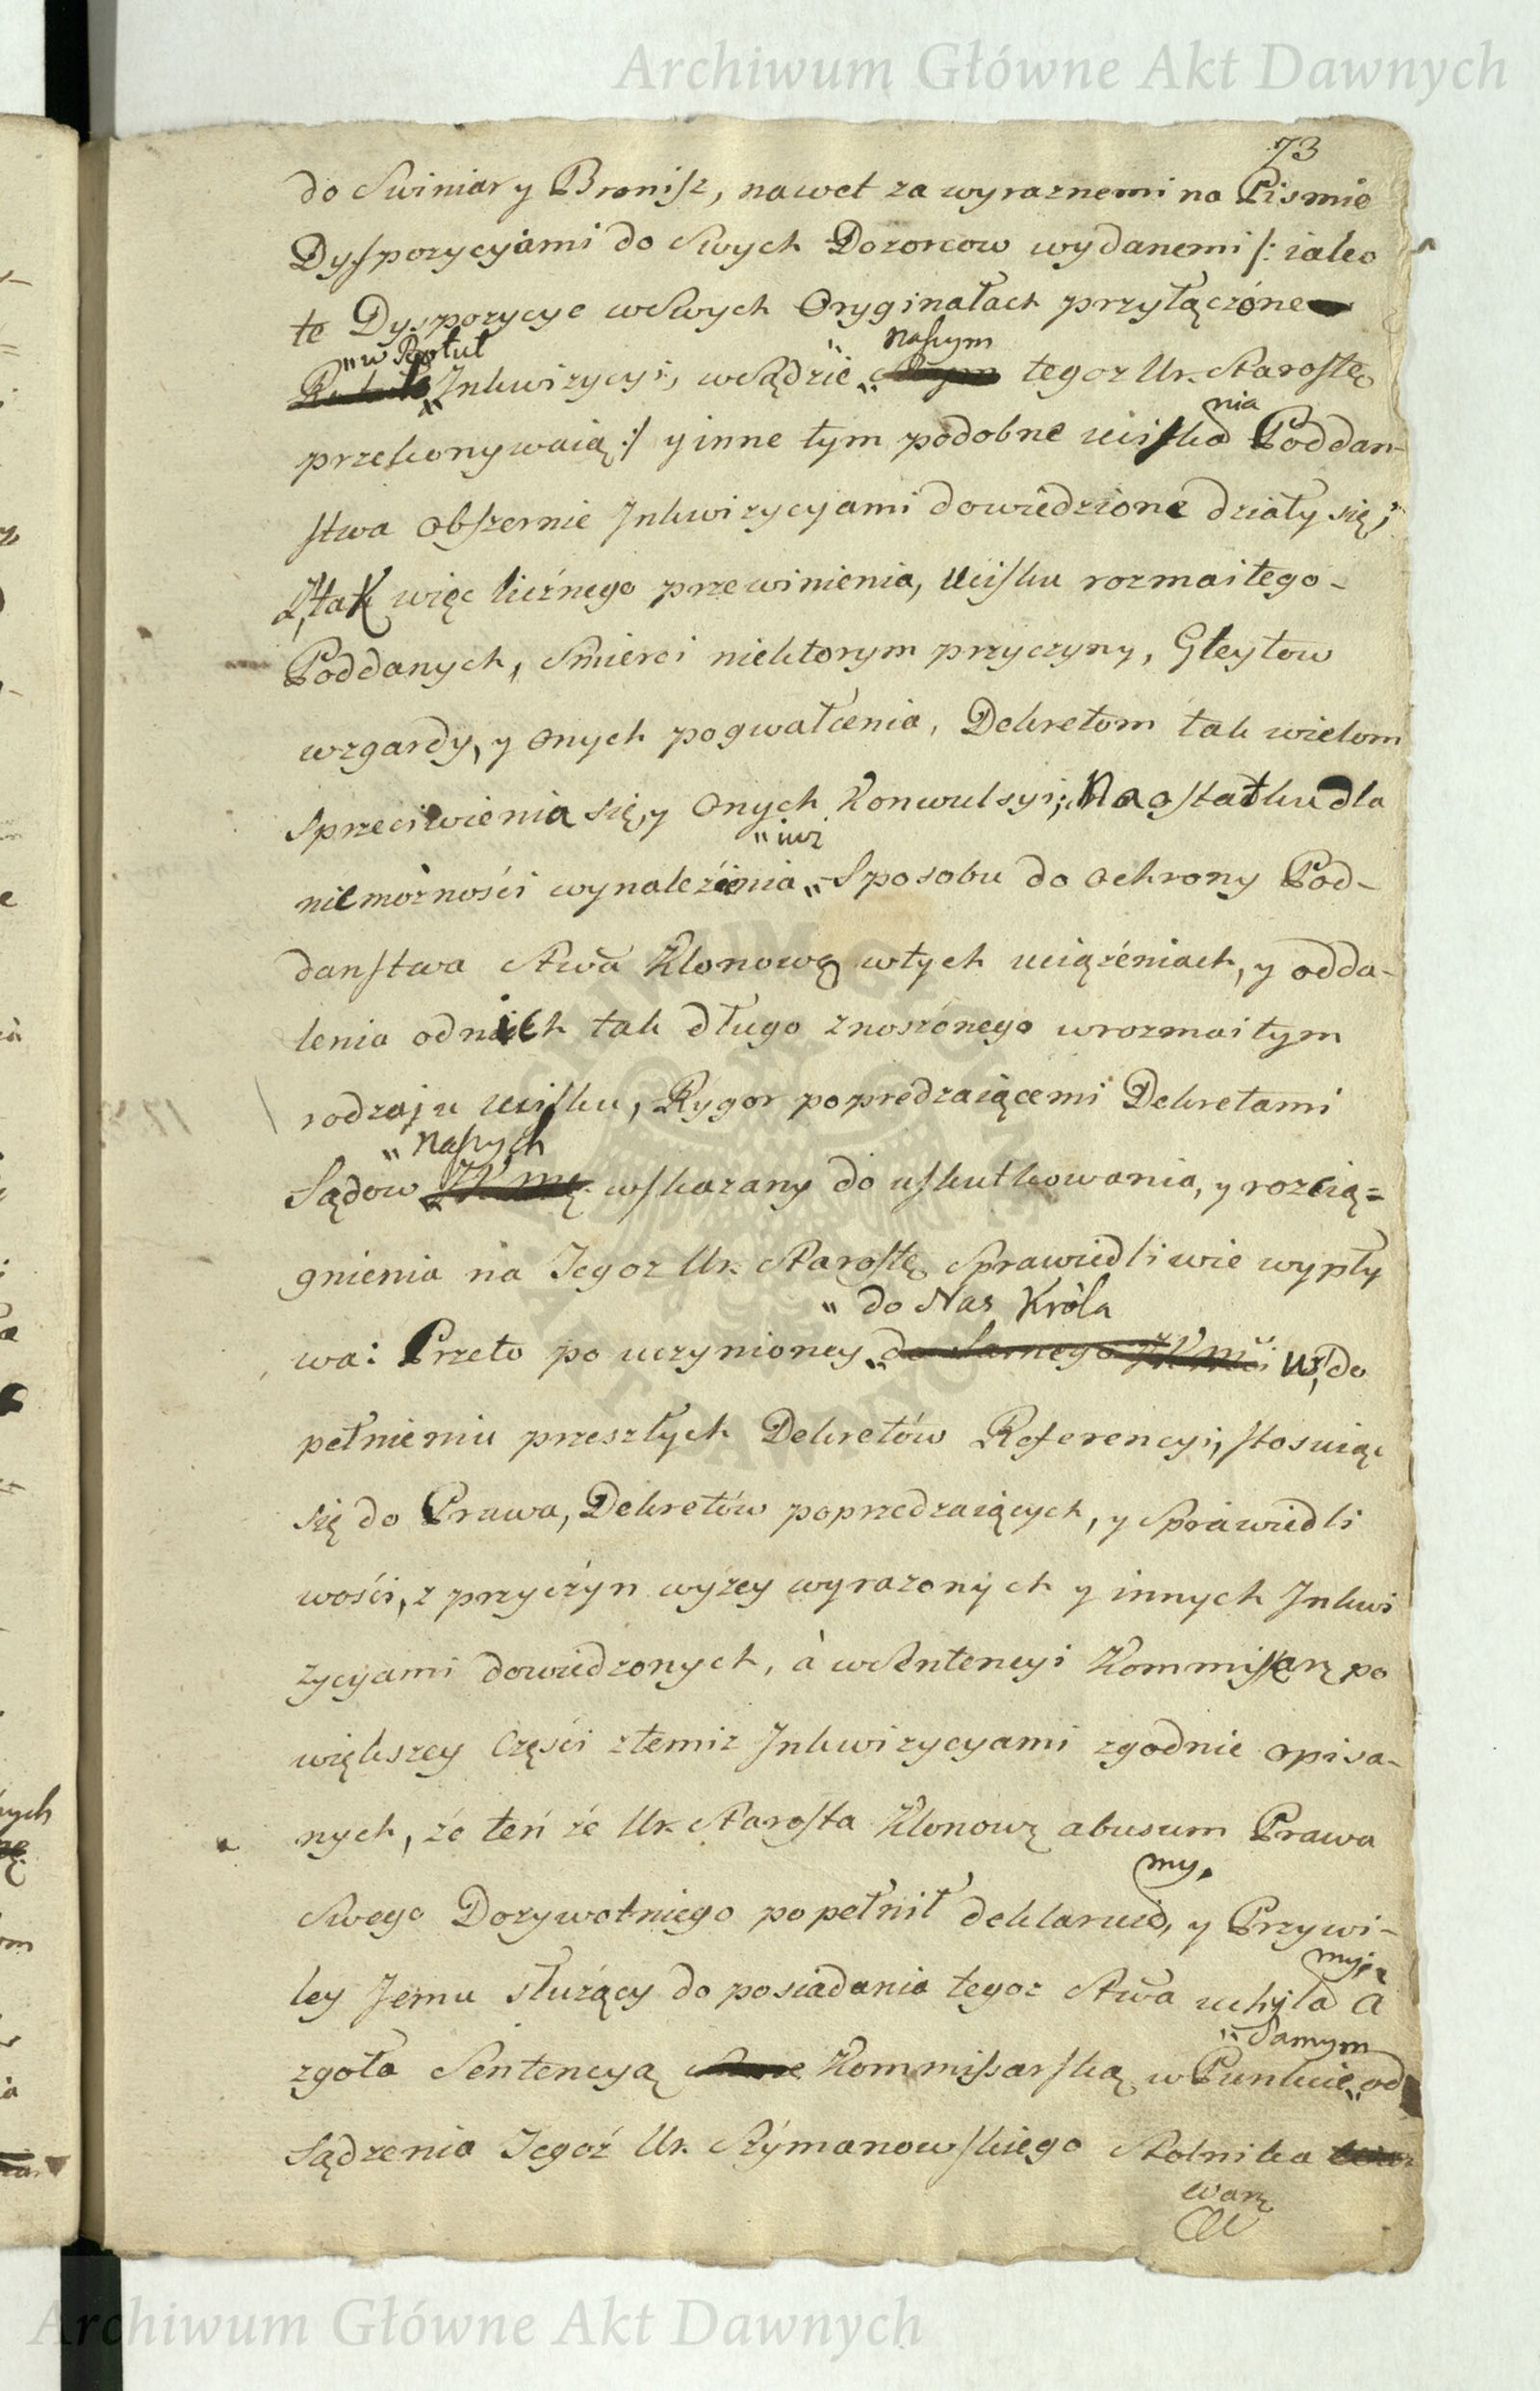 Archiwum Główne Akt Dawnych
73
do Swiniar y Bronisz, nawet za wyraznemi na Pismie
Dyspozycyiami do Swych Dozorcow wydanemi /: iako
te Dyspozycye w Swych Oryginałach przyłączóne
w Rotuł
naszym
Inkwizycyi, w Sądzie tegoz Ur. Starostę
nia
przekonywaią :/ y inne tym podobne uciska Poddan-
stwa obszernie Inkwizycyami dowiedzione działy się;
A tak więc licznego przewinienia, Ucisku rozmaitego
Poddanych, Smierci niektorym przyczyny, Gleytow
wzgardy, y onych pogwałcenia, Dekretom tak wielom
Sprzeciwienia się, y Onych Konwulsyi; Naostatku dla
iuż
niemożności wynalezienia Sposobu do ochrony Pod-
danstwa Stwa Klonowę w tych uciążeniach, y odda-
lenia od nich tak długo znoszonego w rozmaitym
rodzaju ucisku, Rygor poprzedzaiącemi Dekretami
Naszych
Sądow wskazany do uskutkowania, y rozcią=
gnienia na Tegoz Ur. Starostę Sprawiedliwie wypły
do Nas Króla
wa: Przeto po uczynioney w do
pełnieniu przeszłych Dekretów Referencyi, stosuiąc
się do Prawa, Dekretów poprzedzaiących, y Sprawiedli
wości, z przyczyn wyżey wyrazonych y innych Inkwi
zycyami dowiedzonych, à w Sentencyi Kommissarz po
większey Części z temiz Inkwizycyami zgodnie opisa-
nych, że ten że Ur. Starosta Klonowę abusum Prawa
my,
Swego Dozywotniego popełnił deklaruie, y Przywi-
my;
ley Jemu służący do posiadania tegoz Stwa uchyla a
Samym
zgoła Sentencyą Kommissarską w Punkcie od
Sądzenia Tegoż Ur. Szymanowskiego Stolnika
warz
Archiwum Główne Akt Dawnych